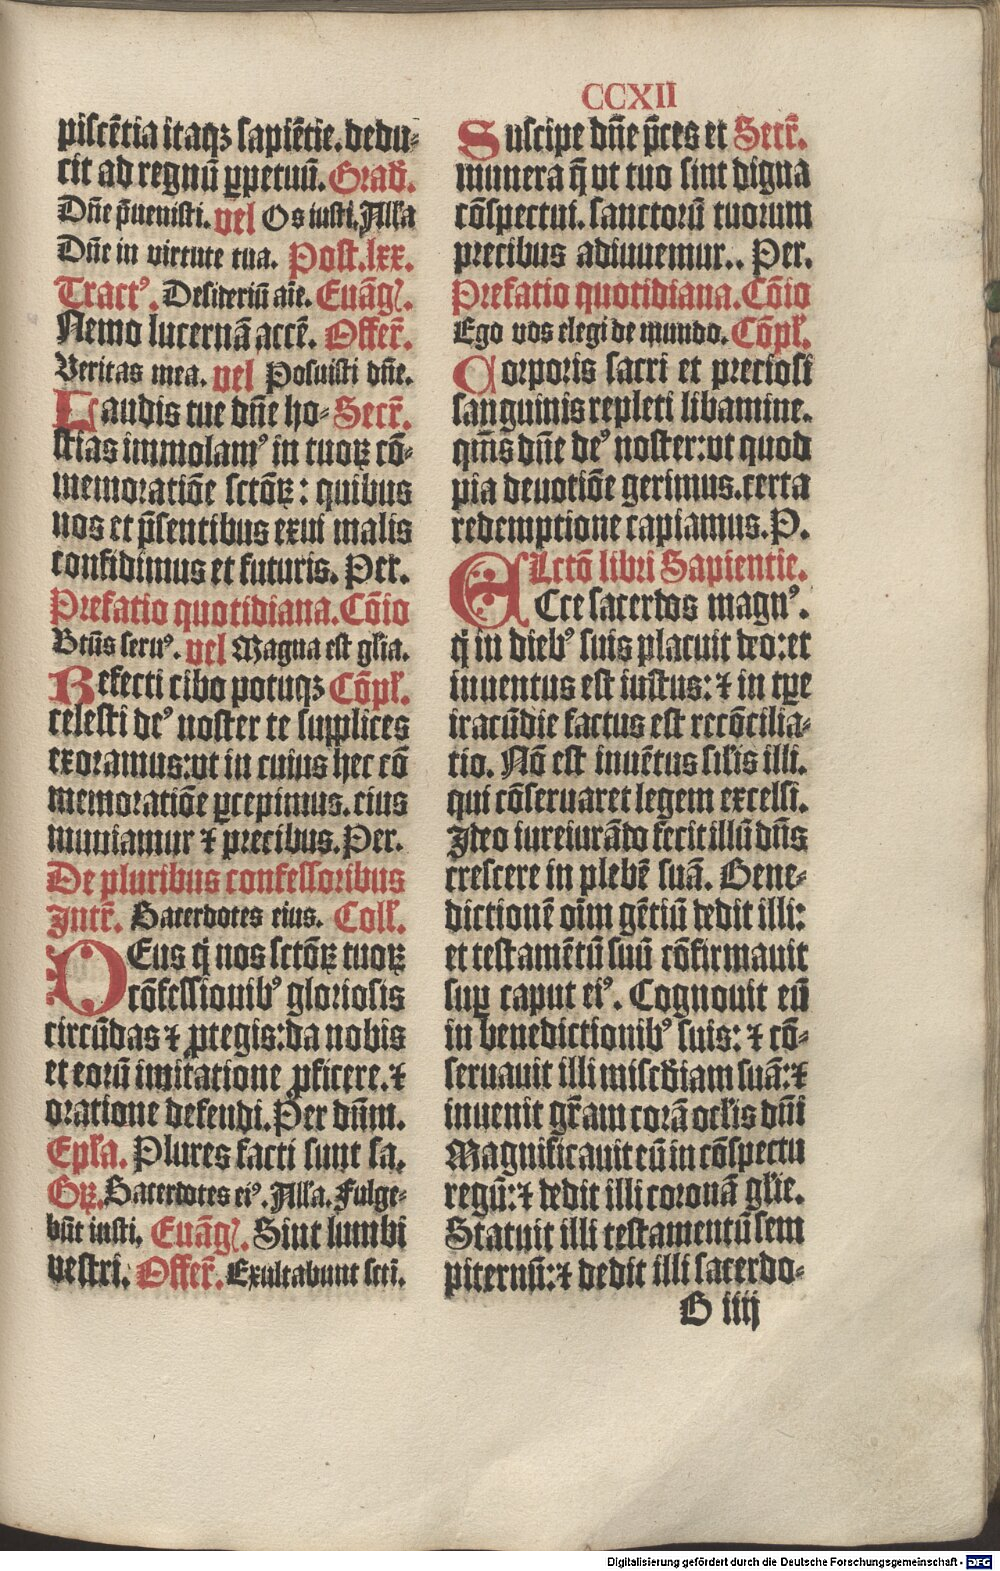 CCXII
piscētia itaqꝫ sapiētie. dedu-
cit ad regnū ꝑpetuū. Grad̄.
Dn̄e p̄uenisti. vel Os iusti. Alľa
Dn̄e in virtute tua. Post.lxx.
Tractꝰ. Desideriū aīe. Euāgľ.
Nemo lucernā accē. Offer̄.
Veritas mea. vel Posuisti dn̄e.
Laudis tue dn̄e ho- Secr̄.
stias immolamꝰ in tuoꝝ cō-
memoratiōe sctōꝝ: quibus
nos et p̄sentibus exui malis
confidimus et futuris. Per.
Prefatio quotidiana. Cōio
Btūs seruꝰ. vel Magna est glīa.
Refecti cibo potuqꝫ Cōpľ.
celesti deꝰ noster te supplices
exoramus: vt in cuius hec cō
memoratiōe ꝑcepimus. eius
muniamur ⁊ precibus. Per.
De pluribus confessoribus
Intr̄. Sacerdotes eius. Coll̄.
DEus q̄ nos sctōꝝ tuoꝝ
cōfessionibꝰ gloriosis
circūdas ⁊ ꝓtegis: da nobis
et eorū imitatione ꝓficere. ⁊
oratione defendi. Per dn̄m.
Epľa. Plures facti sunt sa.
Gꝝ. Sacerdotes eiꝰ. Alľa. Fulge-
būt iusti. Euāgľ. Sint lumbi
vestri. Offer̄. Exultabunt scti.
Suscipe dn̄e p̄ces et Secr̄.
munera q̄ vt tuo sint digna
cōspectui. sanctorū tuorum
precibus adiuuemur.. Per.
Prefatio quotidiana. Cōio
Ego vos elegi de mundo. Cōpľ.
Corporis sacri et preciosi
sanguinis repleti libamine.
qm̄s dn̄e deꝰ noster: vt quod
pia deuotiōe gerimus. certa
redemptione capiamus. P.
Lctō libri Sapientie.
ECce sacerdos magnꝰ.
q̄ in diebꝰ suis placuit deo: et
inuentus est iustus: ⁊ in tꝑe
iracūdie factus est recōcilia-
tio. Nō est inuētus sīlis illi.
qui cōseruaret legem excelsi.
Ideo iureiurādo fecit illū dn̄s
crescere in plebē suā. Bene-
dictionē oīm gētiū dedit illi:
et testamētū suū cōfirmauit
suꝑ caput eiꝰ. Cognouit eū
in benedictionibꝰ suis: ⁊ cō-
seruauit illi misc̄diam suā: ⁊
inuenit gr̄am corā ocľis dn̄i
Magnificauit eū in cōspectu
regū: ⁊ dedit illi coronā glīe.
Statuit illi testamentū sem
piternū: ⁊ dedit illi sacerdo-
G iiij
Digitalisierung gefördert durch die Deutsche Forschungsgemeinschaft - DFG